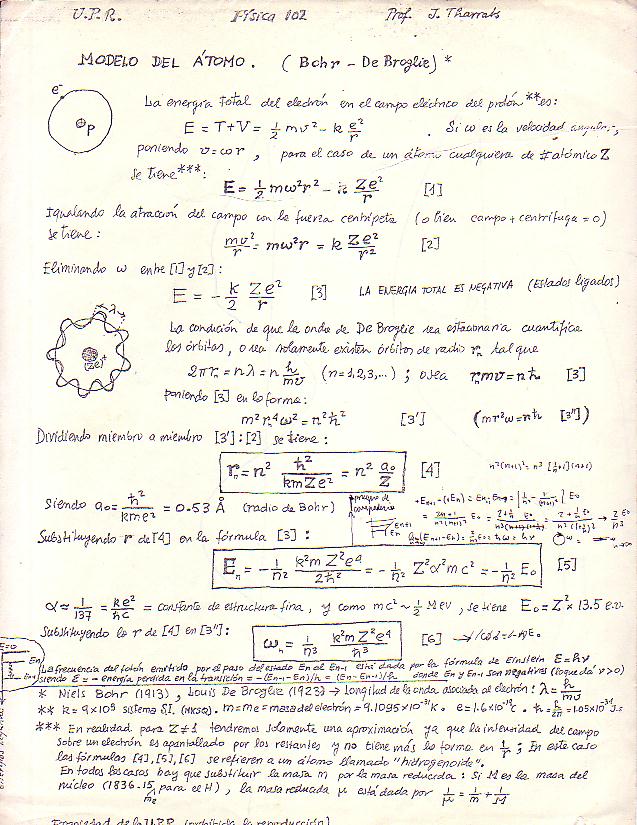 U.P.R. Física 102 Prof. J. Tharrats
MODELO DEL ÁTOMO. (Bohr - De Broglie)*
e⁻
⊕p
La energía total del electrón en el campo eléctrico del protón** es:
E = T+V = 1/2 mv² - k e²/r . Si ω es la velocidad angular,
poniendo v=ωr , para el caso de un átomo cualquiera de # atómico Z
se tiene***:
E = 1/2 mω²r² - k Ze²/r [1]
Igualando la atracción del campo con la fuerza centrípeta (o bien campo + centrífuga = 0)
se tiene: mv²/r = mω²r = k Ze²/r² [2]
Eliminando ω entre [1] y [2]:
E = - k/2 Ze²/r [3] LA ENERGIA TOTAL ES NEGATIVA (Estados ligados)
λ
(Ze)⁺
La condición de que la onda de De Broglie sea estacionaria cuantifica
las órbitas, o sea solamente existen órbitas de radio rₙ tal que
2πrₙ = nλ = n h/mv (n=1,2,3,...) ; o sea rₙmv = nħ [3]
poniendo [3] en la forma:
m²rₙ⁴ω² = n²ħ² [3'] (mr²ω = nħ [3''])
Dividiendo miembro a miembro [3']:[2] se tiene:
rₙ = n² ħ²/kmZe² = n² a₀/Z [4]
Siendo a₀ = ħ²/kme² = 0.53 Å (radio de Bohr)
Substituyendo r de [4] en la fórmula [3]:
Eₙ = - 1/n² k²mZ²e⁴/2ħ² = - 1/n² Z²α²mc² = - 1/n² E₀ [5]
α ≈ 1/137 = ke²/ħc = constante de estructura fina, y como mc² ~ 1/2 Mev, se tiene E₀ = Z² × 13.5 e.v.
Substituyendo la r de [4] en [3'']:
ωₙ = 1/n³ k²mZ²e⁴/ħ³ [6]
E=0
Eₙ
Eₙ₋₁
La frecuencia del fotón emitido por el paso del estado Eₙ al Eₙ₋₁ está dada por la fórmula de Einstein E=hν
siendo E = - energía perdida en la transición = -(Eₙ₋₁-Eₙ)/h = (Eₙ-Eₙ₋₁)/h donde Eₙ y Eₙ₋₁ son negativas (lo que da ν>0)
* Niels Bohr (1913), Louis De Broglie (1923) → Longitud de la onda asociada al electrón: λ = h/mv
** k = 9×10⁹ sistema SI. (MKSQ). m = mₑ = masa del electrón = 9.1095×10⁻³¹K. e = 1.6×10⁻¹⁹C. ħ = h/2π = 1.05×10⁻³⁴ J.s
*** En realidad para Z≠1 tendremos solamente una aproximación ya que la intensidad del campo
sobre un electrón es apantallado por los restantes y no tiene más la forma en 1/r ; En este caso
las fórmulas [4],[5],[6] se refieren a un átomo llamado "hidrogenoide".
En todos los casos hay que substituir la masa m por la masa reducida: Si M es la masa del
núcleo (1836.15 mₑ para el H), la masa reducida μ está dada por 1/μ = 1/m + 1/M
Propiedad de la U.P.R. (prohibida la reproducción)